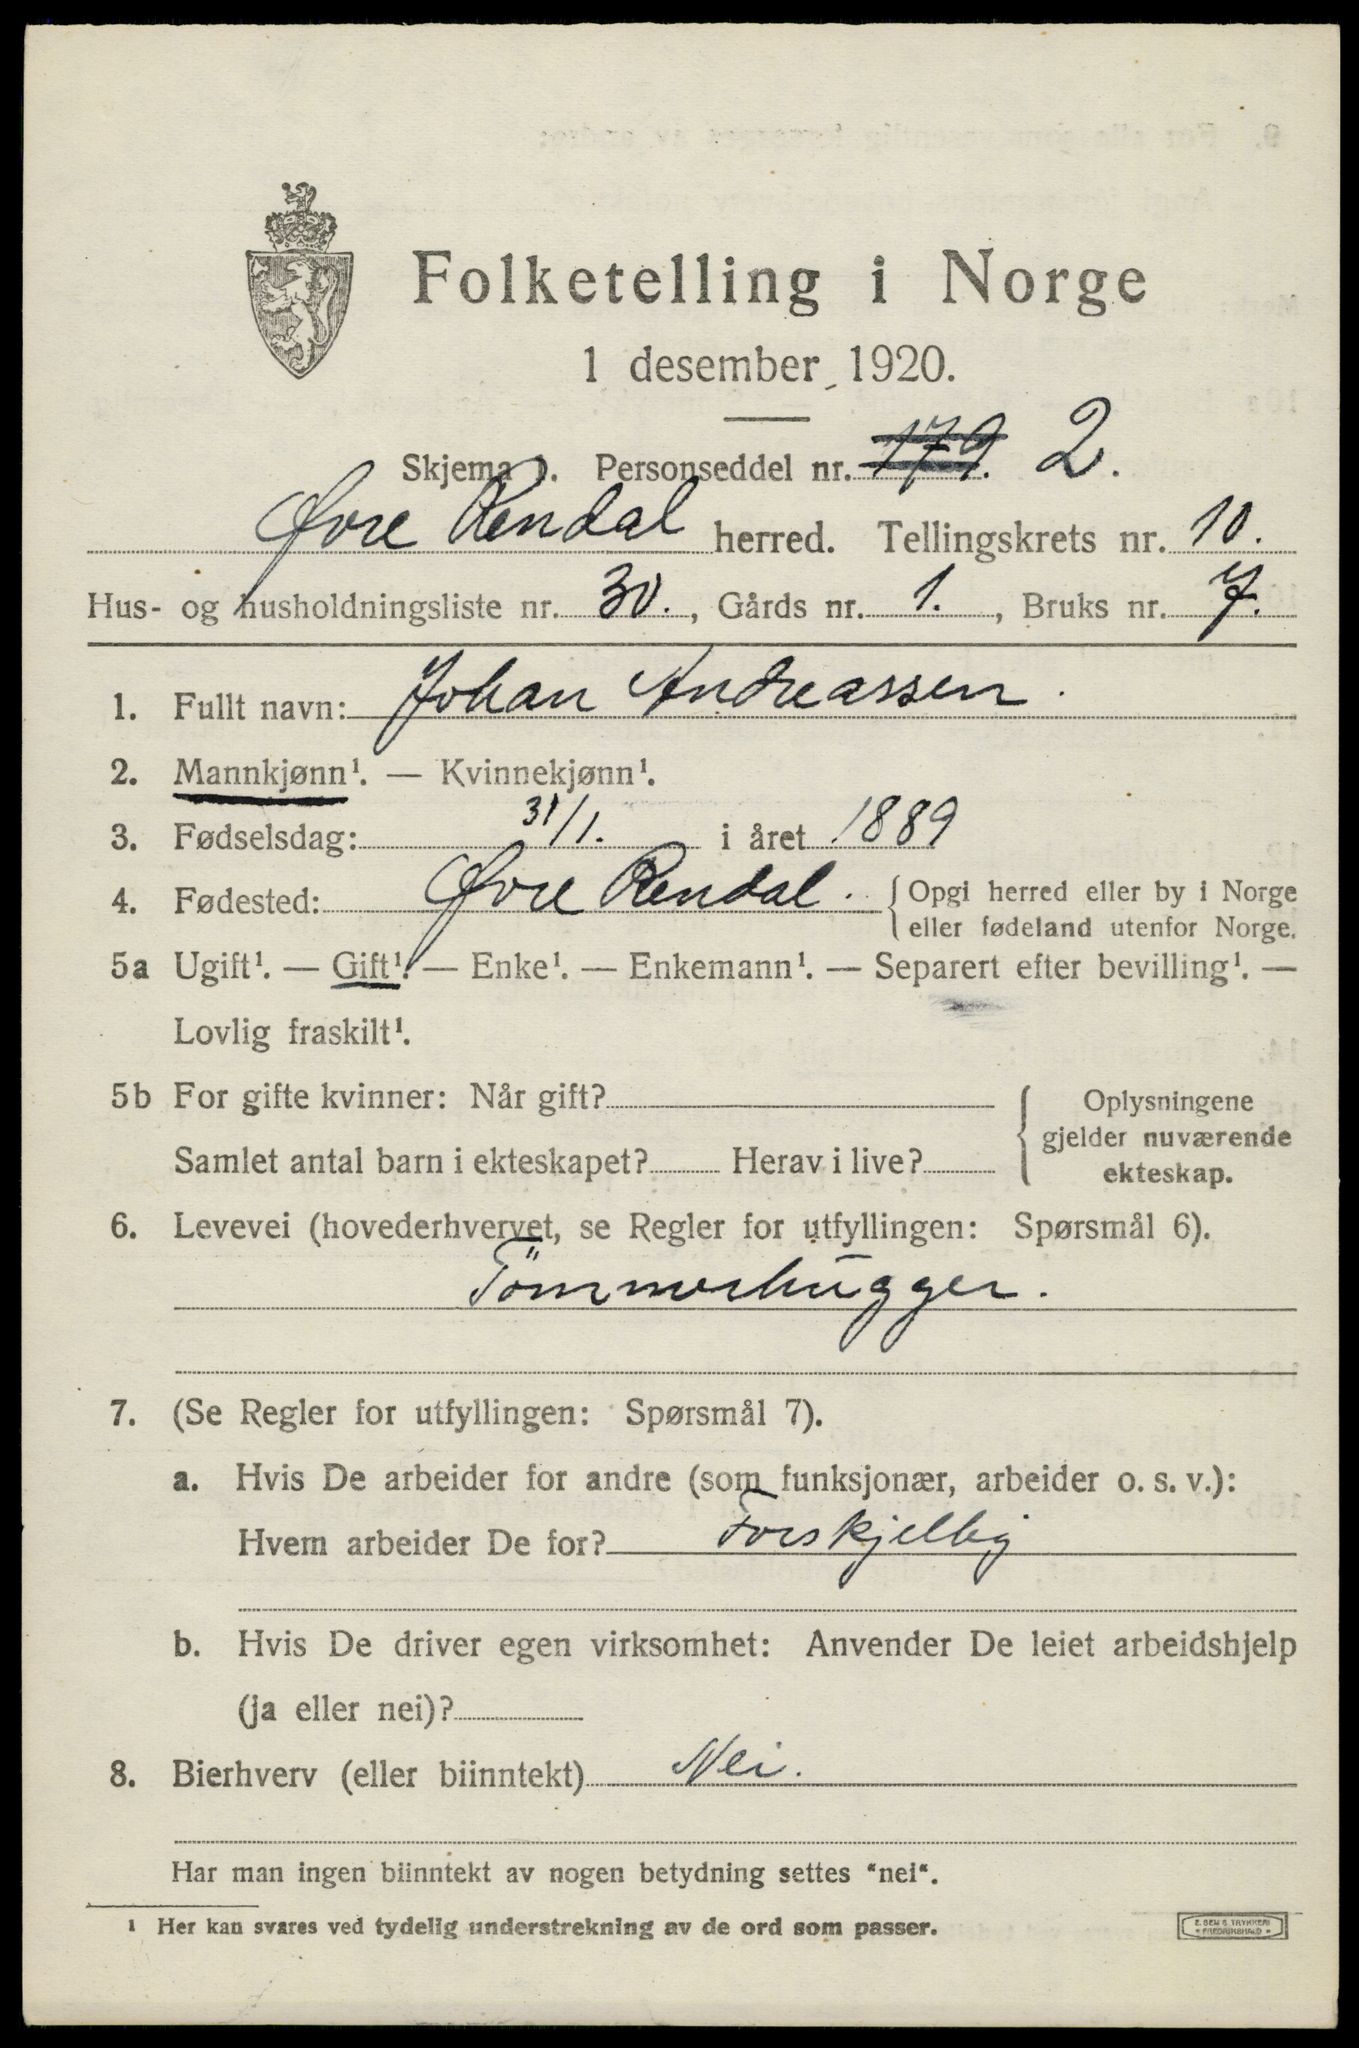 Folketelling i Norge
1 desember 1920.
Skjema 1. Personseddel nr. 179. 2.
Øvre Rendal herred. Tellingskrets nr. 10.
Hus- og husholdningsliste nr. 30., Gårds nr. 1., Bruks nr. 7.
1. Fullt navn: Johan Andreassen.
2. Mannkjønn¹. — Kvinnekjønn¹.
3. Fødselsdag: 31/1. i året 1889
4. Fødested: Øvre Rendal. {Opgi herred eller by i Norge
eller fødeland utenfor Norge.
5a Ugift¹. — Gift¹. — Enke¹. — Enkemann¹. — Separert efter bevilling¹. —
Lovlig fraskilt¹.
5b For gifte kvinner: Når gift?
Samlet antal barn i ekteskapet? Herav i live?
{Oplysningene
gjelder nuværende
ekteskap.
6. Levevei (hovederhvervet, se Regler for utfyllingen: Spørsmål 6).
Tömmerhugger.
7. (Se Regler for utfyllingen: Spørsmål 7).
a. Hvis De arbeider for andre (som funksjonær, arbeider o. s. v.):
Hvem arbeider De for? Forskjellig
b. Hvis De driver egen virksomhet: Anvender De leiet arbeidshjelp
(ja eller nei)?
8. Bierhverv (eller biinntekt) Nei.
Har man ingen biinntekt av nogen betydning settes "nei".
¹ Her kan svares ved tydelig understrekning av de ord som passer.
E. SEM'S TRYKKERI
FREDRIKSHALD